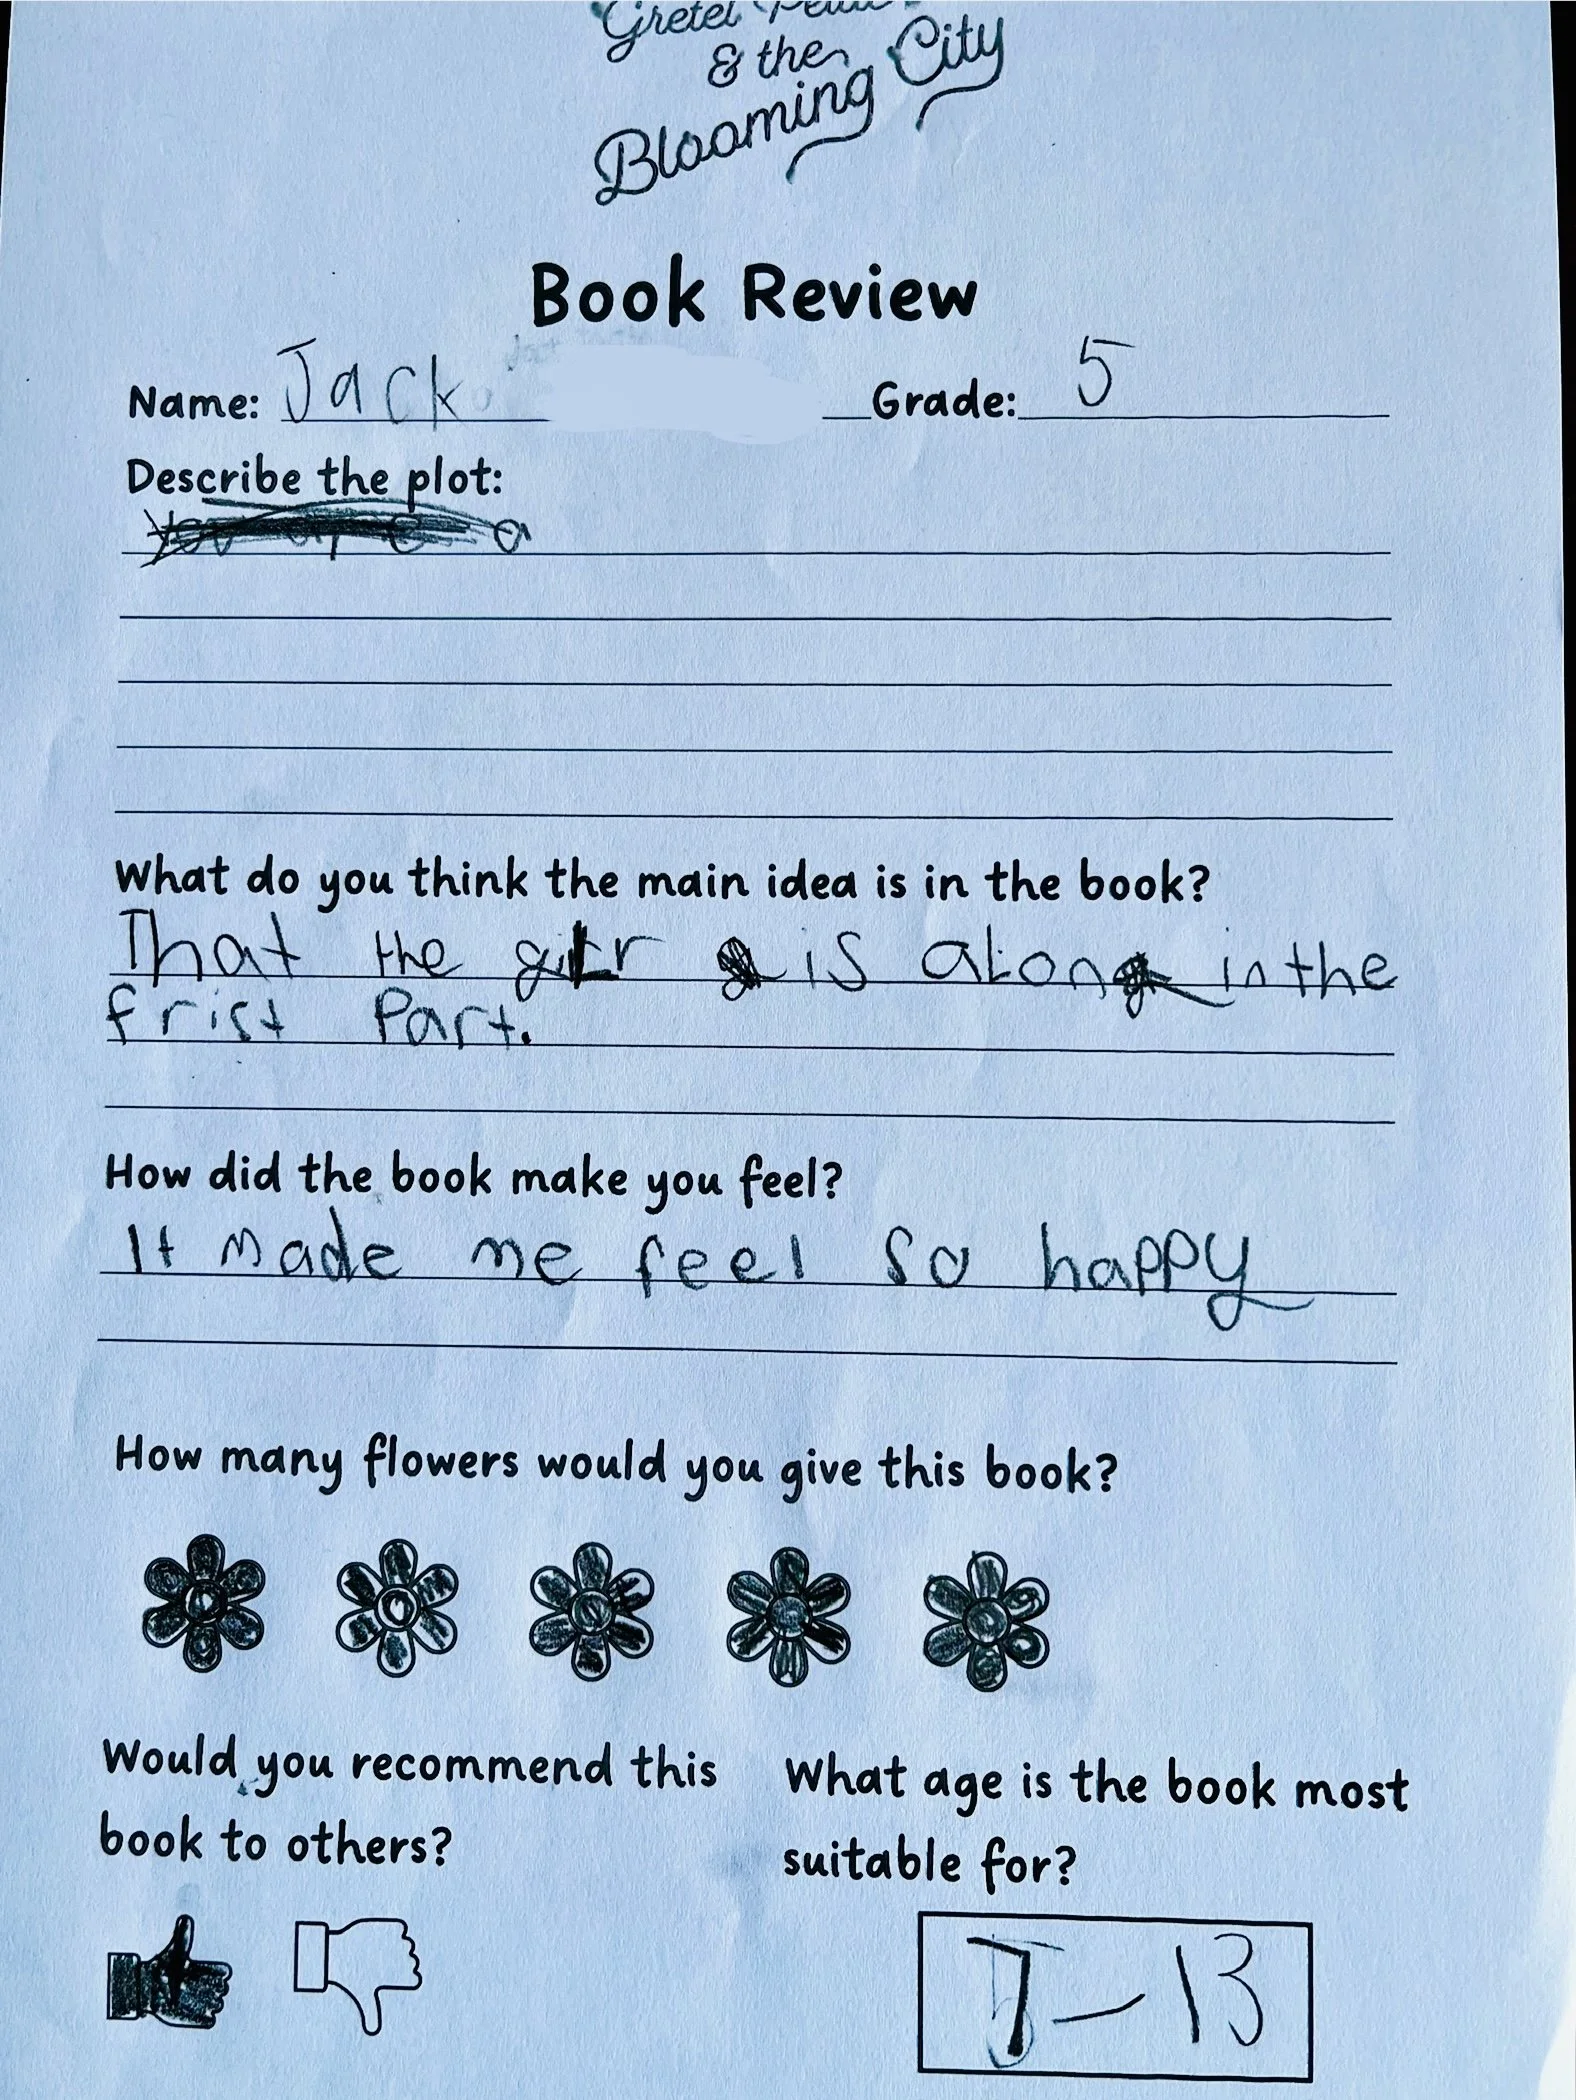 Gretel
& the
Blooming City
Book Review
Name: Jack Grade: 5
Describe the plot:
What do you think the main idea is in the book?
That the is alon in the
frist Part.
How did the book make you feel?
It made me feel so happy
How many flowers would you give this book?
Would you recommend this
book to others?
What age is the book most
suitable for?
7-13